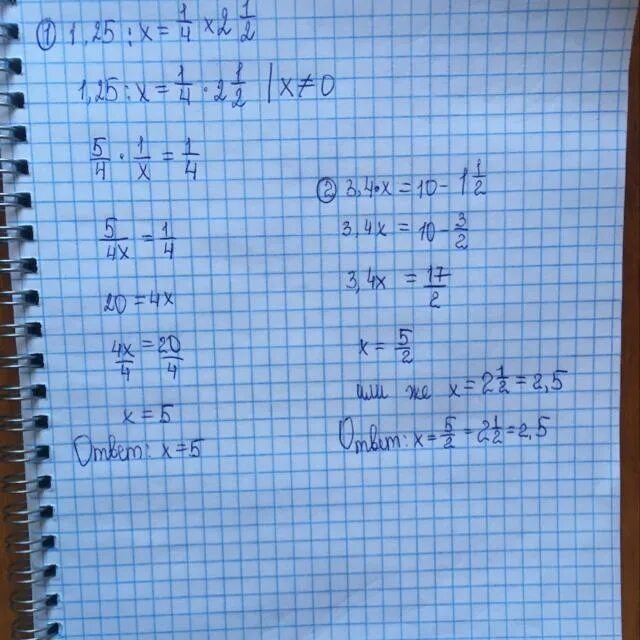 ① 1,25 : x = 1/4 × 2 1/2
1,25 : x = 1/4 · 2 1/2 | x ≠ 0
5/4 · 1/x = 1/4
5/4x = 1/4
20 = 4x
4x/4 = 20/4
x = 5
Ответ: x = 5
② 3,4·x = 10 - 1 1/2
3,4x = 10 - 3/2
3,4x = 17/2
x = 5/2
или же x = 2 1/2 = 2,5
Ответ: x = 5/2 = 2 1/2 = 2,5